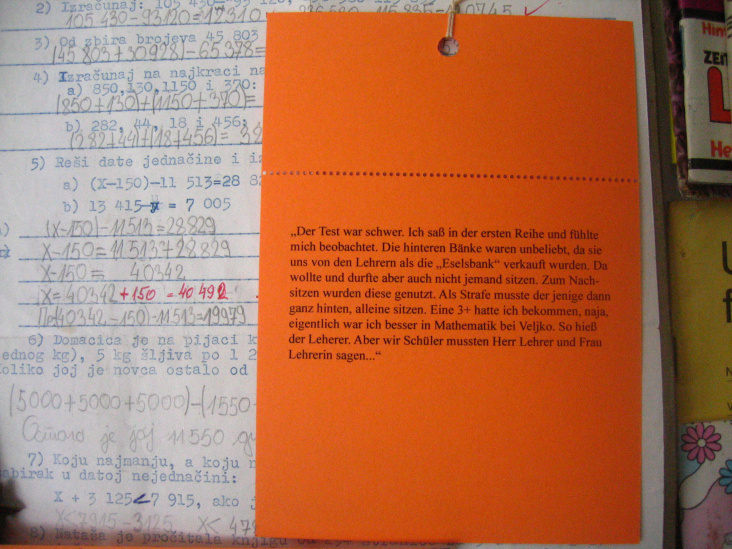 2) Izračunaj: 105 430-93 120=
105 430-93120=12310
3) Od zbira brojeva 45 803
(45 803+30928)-65 378=
4) Izračunaj na najkraci na
a) 850,130,1150 i 370:
(850+130)+(1150+370)=
b) 282, 44, 18 i 456:
(282+44)+(18+456)=
5) Reši date jednačine i iz
a) (X-150)-11 513=28 82
b) 13 415-x = 7 005
(x-150)-11513=28829
X-150=11513+28829
X-150= 40342
X=40342+150=40492
(40342-150)-11513=19979
6) Domacica je na pijaci k
ednog kg), 5 kg šljiva po 1 2
oliko joj je novca ostalo od
(5000+5000+5000)-(1550-
је јој 11550
7) Koju najmanju, a koju n
abirak u datoj nejednačini:
X + 3 125<7 915, ako j
X<7915-3125 X<479
8) Nataša je pročitala knjigu
„Der Test war schwer. Ich saß in der ersten Reihe und fühlte
mich beobachtet. Die hinteren Bänke waren unbeliebt, da sie
uns von den Lehrern als die „Eselsbank“ verkauft wurden. Da
wollte und durfte aber auch nicht jemand sitzen. Zum Nach-
sitzen wurden diese genutzt. Als Strafe musste der jenige dann
ganz hinten, alleine sitzen. Eine 3+ hatte ich bekommen, naja,
eigentlich war ich besser in Mathematik bei Veljko. So hieß
der Leherer. Aber wir Schüler mussten Herr Lehrer und Frau
Lehrerin sagen...“